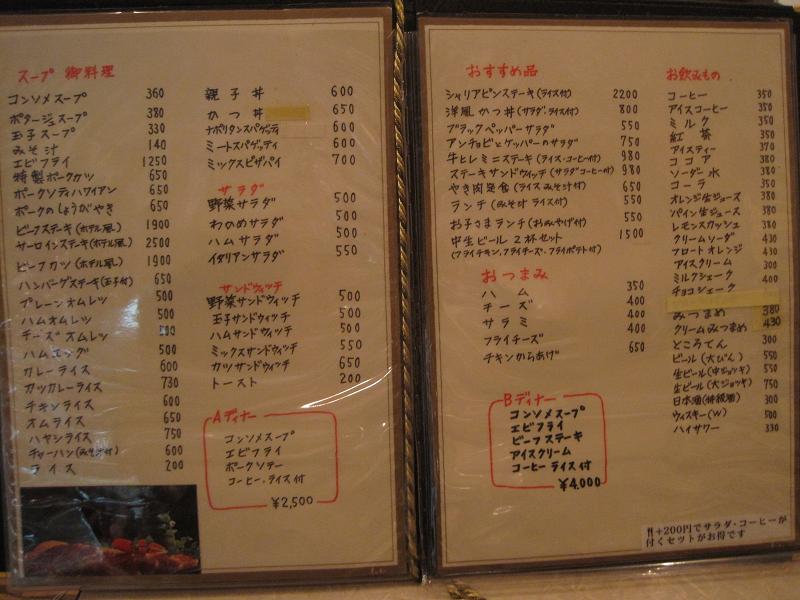 スープ 御料理
コンソメスープ 360
ポタージュスープ 380
玉子スープ 330
みそ汁 140
エビフライ 1250
特製ポークカツ 650
ポークソティハワイアン 650
ポークのしょうがやき 650
ビーフステーキ(ホテル風) 1900
サーロインステーキ(ホテル風) 2500
ビーフカツ(ホテル風) 1900
ハンバーグステーキ(玉子付) 650
プレーンオムレツ 500
ハムオムレツ 500
チーズオムレツ
ハムエッグ 500
カレーライス 600
カツカレーライス 730
チキンライス 600
オムライス 650
ハヤシライス 750
チャーハン(みそ汁付) 600
ライス 200
親子丼 600
かつ丼 650
ナポリタンスパゲッティ 600
ミートスパゲッティ 600
ミックスピザパイ 700
サラダ
野菜サラダ 500
わかめサラダ 500
ハムサラダ 500
イタリアンサラダ 550
サンドウィッチ
野菜サンドウィッチ 500
玉子サンドウィッチ 500
ハムサンドウィッチ 500
ミックスサンドウィッチ 550
カツサンドウィッチ 650
トースト 200
Aディナー
コンソメスープ
エビフライ
ポークソテー
コーヒー・ライス付
¥2,500
おすすめ品
シャリアピンステーキ(ライス付) 2200
洋風かつ丼(サラダ・ライス付) 800
ブラックペッパーサラダ 550
アンチョビとケッパーのサラダ 750
牛ヒレミニステーキ(ライス・コーヒー付) 980
ステーキサンドウィッチ(サラダコーヒー付) 980
やき肉定食(ライスみそ汁付) 650
ランチ(みそ汁ライス付) 550
お子さまランチ(おみやげ付) 550
中生ビール2杯セット 1500
(フライチキン、フライチーズ・フライポテト付)
おつまみ
ハム 350
チーズ 400
サラミ 400
フライチーズ 400
チキンからあげ 650
Bディナー
コンソメスープ
エビフライ
ビーフステーキ
アイスクリーム
コーヒーライス付
¥4,000
お飲みもの
コーヒー 350
アイスコーヒー 350
ミルク 350
紅茶 350
アイスティー 370
ココア 380
ソーダー水 380
コーラ 350
オレンジ生ジュース 380
パイン生ジュース 380
レモンスカッシュ 380
クリームソーダ 430
フロートオレンジ 430
アイスクリーム 300
ミルクシェーク 400
チョコシェーク 400
みつまめ 380
クリームみつまめ 430
ところてん 300
ビール(大びん) 550
生ビール(中ジョッキ) 550
生ビール(大ジョッキ) 750
日本酒(特級酒) 300
ウィスキー(W) 500
ハイサワー 330
+200円でサラダ・コーヒーが
付くセットがお得です